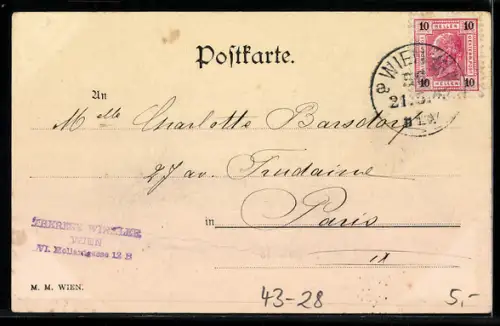 Postkarte.
10 HELLER 10
10 10
WIEN
21.5.
An
Mlle Charlotte Barsdorf
27 av. Trudaine
in Paris
IX
THERESE WINKLER
WIEN
VI. Mollardgasse 12 B
M. M. WIEN.
43-28
5,-